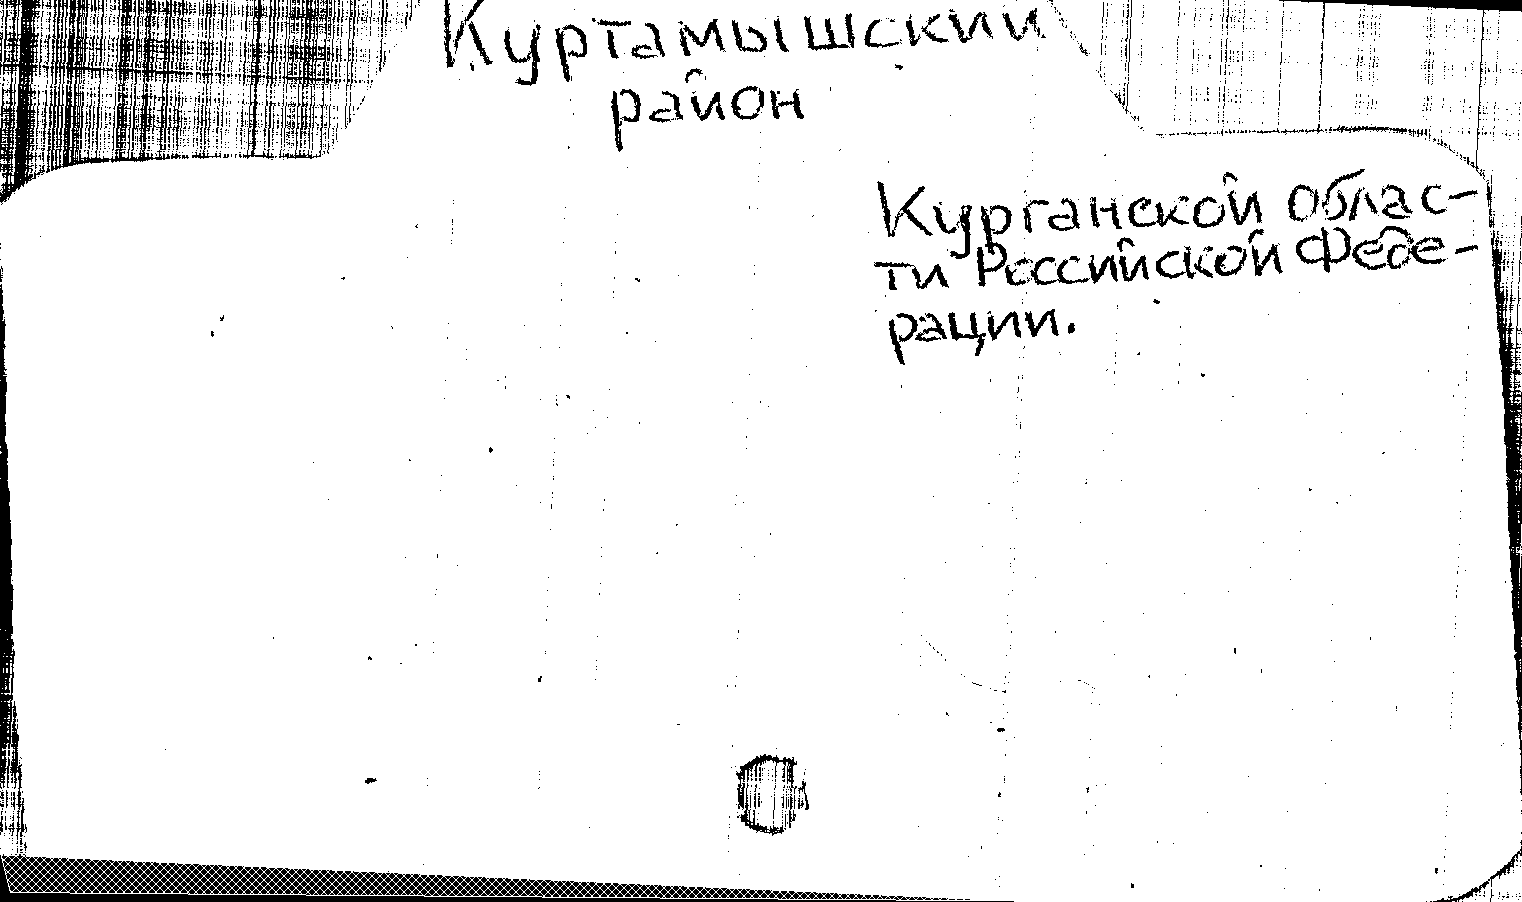 Куртамышский
район
Курганской облас-
ти Российской Феде-
рации.